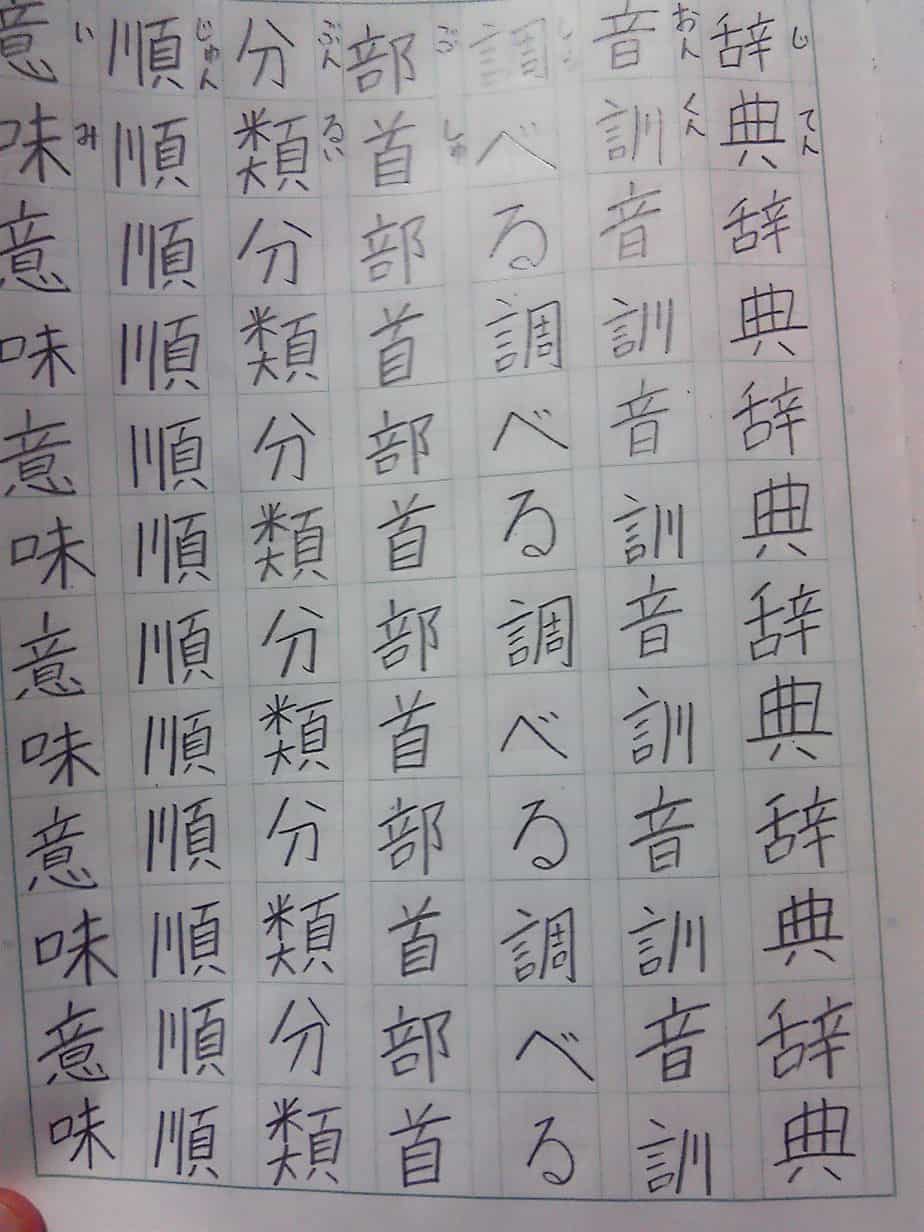 じてん
辞典辞典辞典辞典辞典辞典
おんくん
音訓音訓音訓音訓音訓音訓
調べる調べる調べる調べる
ぶしゅ
部首部首部首部首部首部首
ぶんるい
分類分類分類分類分類分類
じゅん
順順順順順順順順順順順順
いみ
意味意味意味意味意味意味